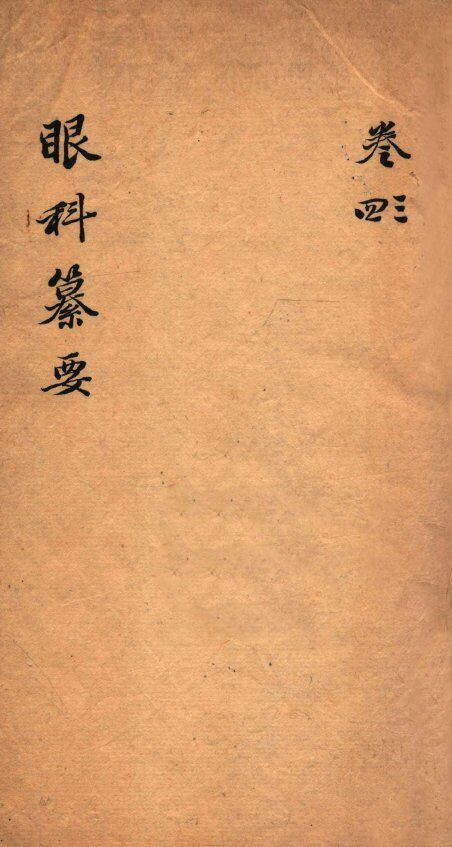 卷三四
眼科纂要